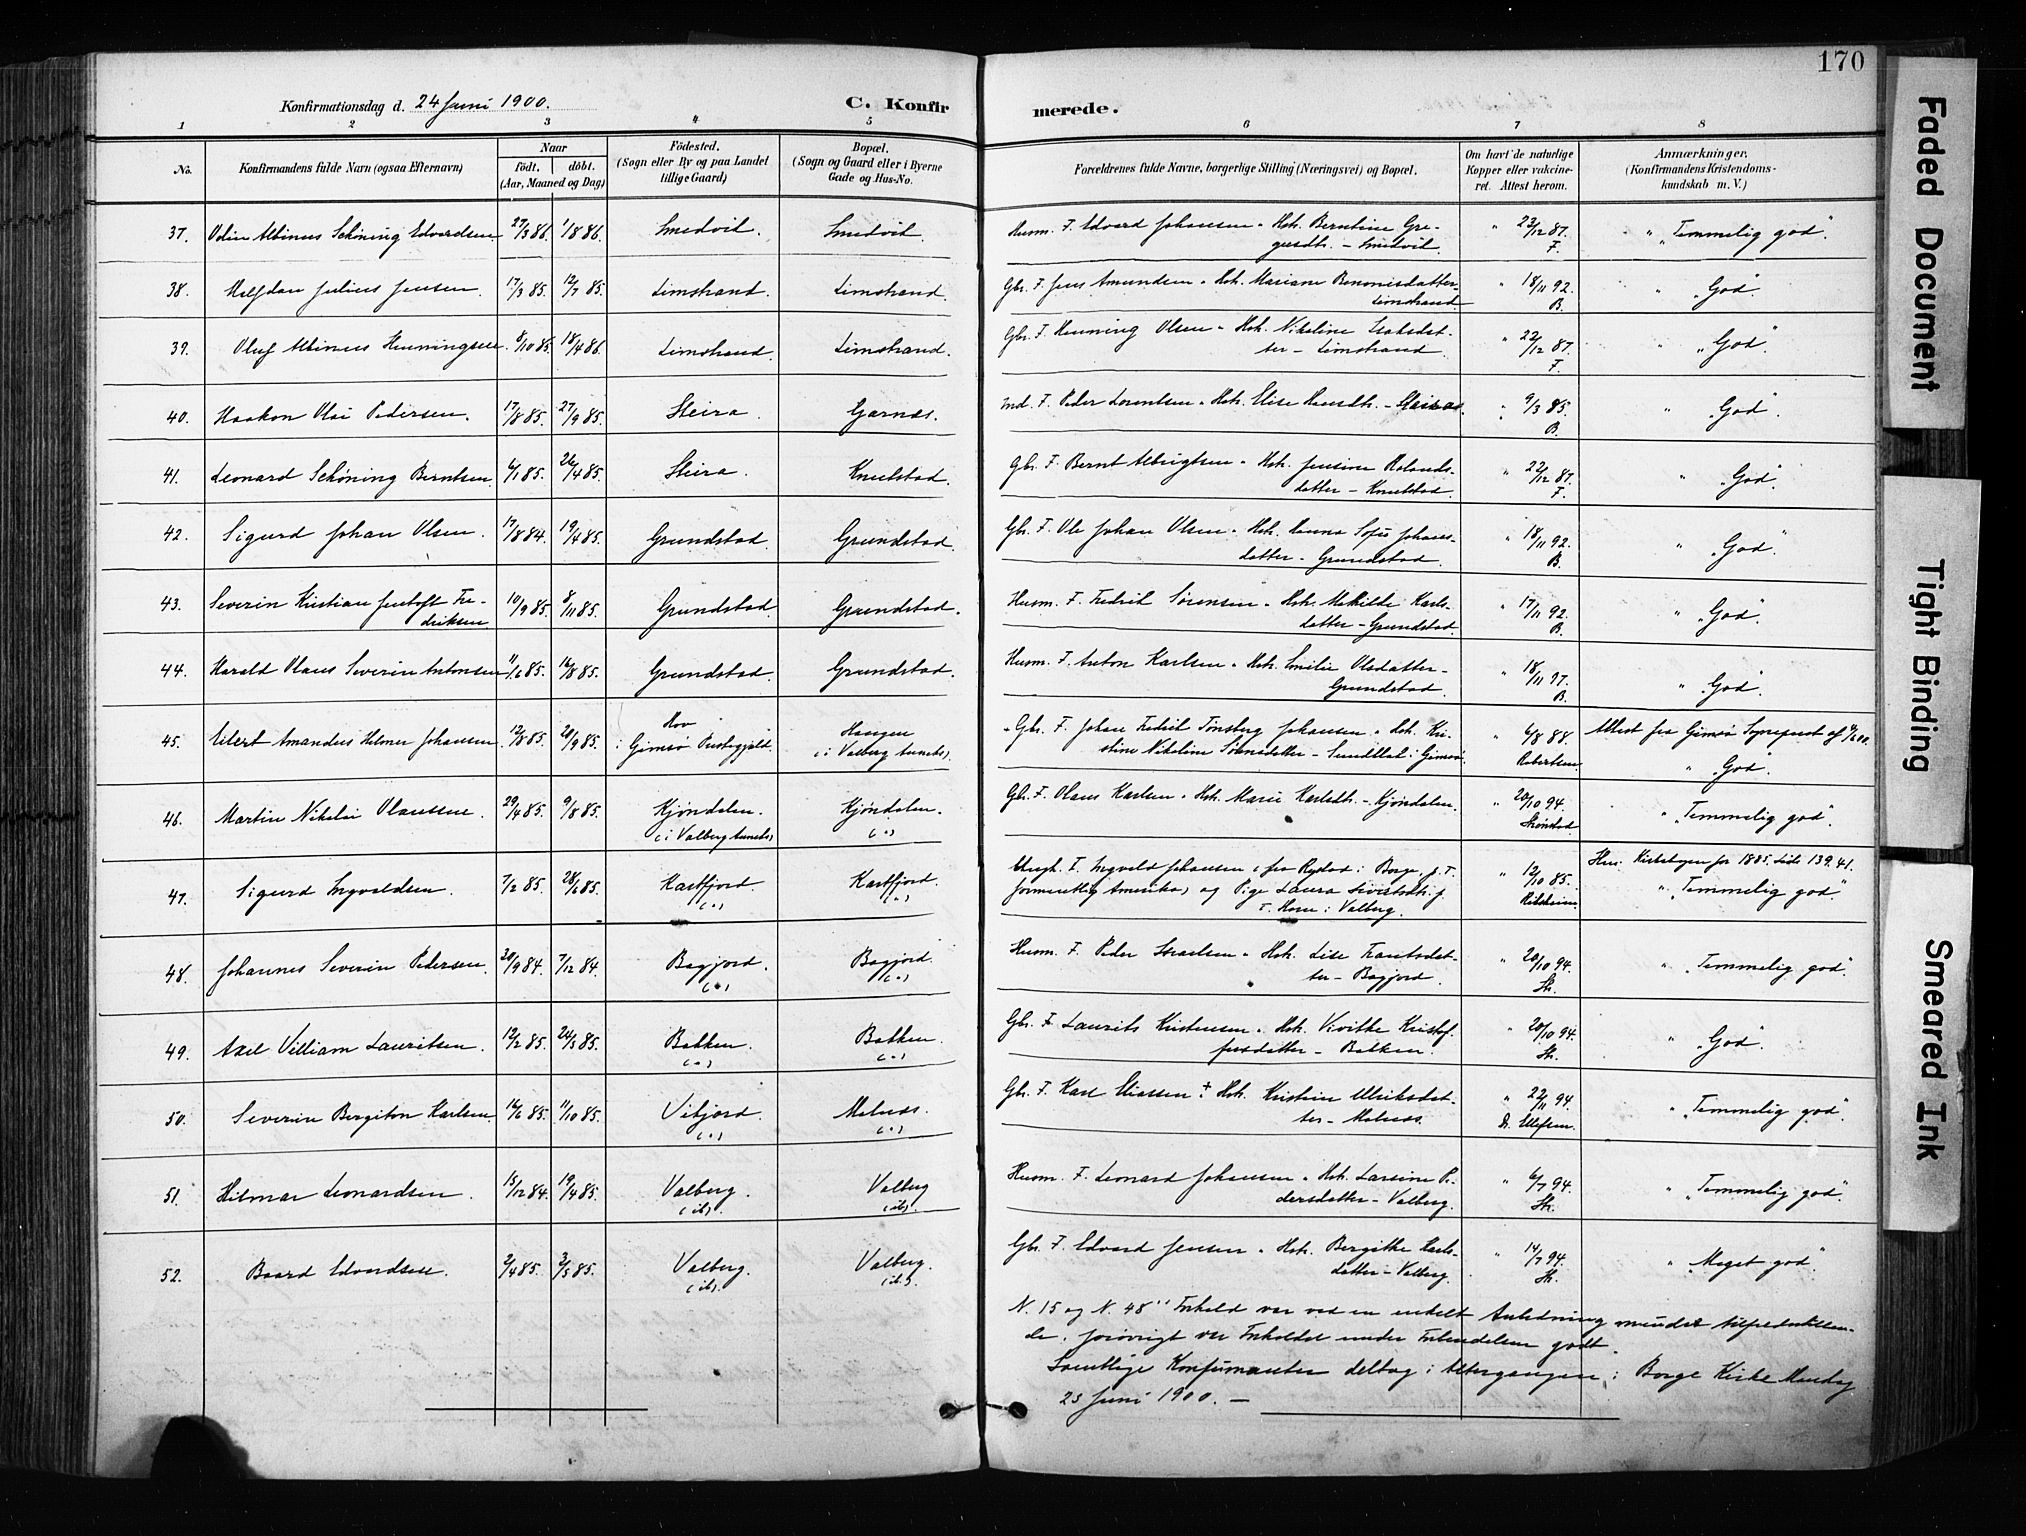 170
Konfirmationsdag d. 24 Juni 1900. C. Konfir merede.
1 2 3 4 5 6 7 8
No. Konfirmandens fulde Navn (ogsaa Efternavn) Naar Födt. döbt. (Aar, Maaned og Dag) Födested. (Sogn eller By og paa Landet tillige Gaard) Bopæl. (Sogn og Gaard eller i Byerne Gade og Hus-No. Forældrenes fulde Navne, borgerlige Stilling (Næringsvei) og Bopæl. Om havt de naturlige Kopper eller vakcineret. Attest herom. Anmærkninger. (Konfirmandens Kristendomskundskab m. V.)
37. Odin Albinus Schöning Edvardsen 27/3 86. 1/8 86. Smedvik. Smedvik. Husm. F. Edvard Johansen " Hst. Berntine Gregersdtr. – Smedvik. " 23/12 87. F. " "Temmelig god".
38. Halfdan Julius Jensen. 17/3 85. 12/7 85. Limstrand. Limstrand. Gbr. F. Jens Amundsen " Hst. Mariane Benonisdatter Limstrand " 18/11 92. B. " "God".
39. Oluf Albinus Henningsen. 8/10 85. 18/4 86. Limstrand. Limstrand. Gbr. F. Henning Olsen " Hst. Nikoline Isaksdatter – Limstrand. " 22/12 87. F. " "God".
40. Haakon Olai Pedersen. 17/8 85. 27/9 85. Steira. Gjarnes. Ind. F. Peder Lorentsen " Hst. Elise Hansdtr. – " 9/3 85. B. " "God".
41. Leonard Schöning Berntsen 6/1 85. 26/4 85. Steira. Knutstad. Gbr. F. Bernt Albrigtsen " Hst. Jensine Rolandsdatter – Knutstad. " 22/12 87. F. " "God".
42. Sigurd Johan Olsen. 17/8 84. 19/4 85. Grundstad. Grundstad. Gbr. F. Ole Johan Olsen " Hst. Hanna Sofie Johansdatter – Grundstad. " 18/11 92. B. " "God".
43. Severin Kristian Jentoft Fredriksen. 10/9 85. 8/11 85. Grundstad Grundstad. Husm. F. Fredrik Sörensen " Hst. Mathilde Karlsdatter – Grundstad. " 17/11 92. B. " "God".
44. Harald Olaus Severin Antonsen 11/6 85. 16/8 85. Grundstad. Grundstad. Husm. F. Anton Karlsen " Hst. Emilie Olsdatter – Grundstad. " 18/11 97. B. " "God".
45. Eilert Amandus Hilmer Johansen 12/8 85. 20/9 85. Hov i Gimsö Præstegjeld. Haugen (i Valberg Annex). Gbr. F. Johan Fredrik Tönsberg Johansen " Hst. Kristine Nikoline – i Gimsö. " 6/8 88. Robertsen. Attest fra Gimsö Sogneprest af " "God".
46. Martin Nikolai Olaussen. 29/4 85. 9/8 85. Kjöndalen. (i Valberg Annex) Kjöndalen. (") Gbr. F. Olaus Karlsen " Hst. Marie Karlsdtr. – Kjöndalen. " 20/10 94. Strönstad " "Temmelig god".
47. Sigurd Ingvaldsen. 7/2 85. 28/6 85. Kartfjord. (") Kartfjord. (") Ungk. F. Ingvald Johansen (fra Rystad i Borge, p. T. formentlig Amerika) og Pige Laura Sivertsdtr. p. T. Horn i Valberg. " 12/10 85. Hns. Kirkebogen for 1885. Side 139. 41. " "Temmelig god".
48. Johannes Severin Pedersen. 20/9 84. 7/12 84. Bogfjord. (") Bogfjord. (") Husm. F. Peder Israelsen " Hst. Lise – Bogfjord. " 20/10 94. Str. " "Temmelig god".
49. Axel Villiam Lauritsen. 12/2 85. 24/5 85. Bakken. (") Bakken. (") Gbr. F. Laurits Kristensen " Hst. Vivikke Kristoffersdatter – Bakken. " 20/10 94. Str. " "God".
50. Severin Bergiton Karlsen 16/6 85. 11/10 85. Vikjord. (") Molnes. (") Gbr. F. Karl Eliassen † " Hst. Kristine Ulriksdatter – Molnes. " 22/11 94. D. Ellefsen. " "Temmelig god".
51. Hilmar Leonardsen. 15/12 84. 19/4 85. Valberg. (ib). Valberg (ib). Husm. F. Leonard Johansen " Hst. Larsine Pedersdatter – Valberg. " 6/7 94. Str. " "Temmelig god".
52. Baard Edvardsen. 2/4 85. 3/5 85. Valberg. (ib). Valberg. (ib.). Gbr. F. Edvard Jensen " Hst. Bergitte Karlsdatter – Valberg. " 14/7 94. Str. " "Meget god".
N. 15 og N. 48" Forhold var ved en enkelt Anledning mindre tilfredsstillende, forövrigt var Forholdet under Forberedelsen godt.
Samtlige Konfirmanter deltog i Altergangen i Borge Kirke Mandag
25 Juni 1900. –
Faded Document
Tight Binding
Smeared Ink